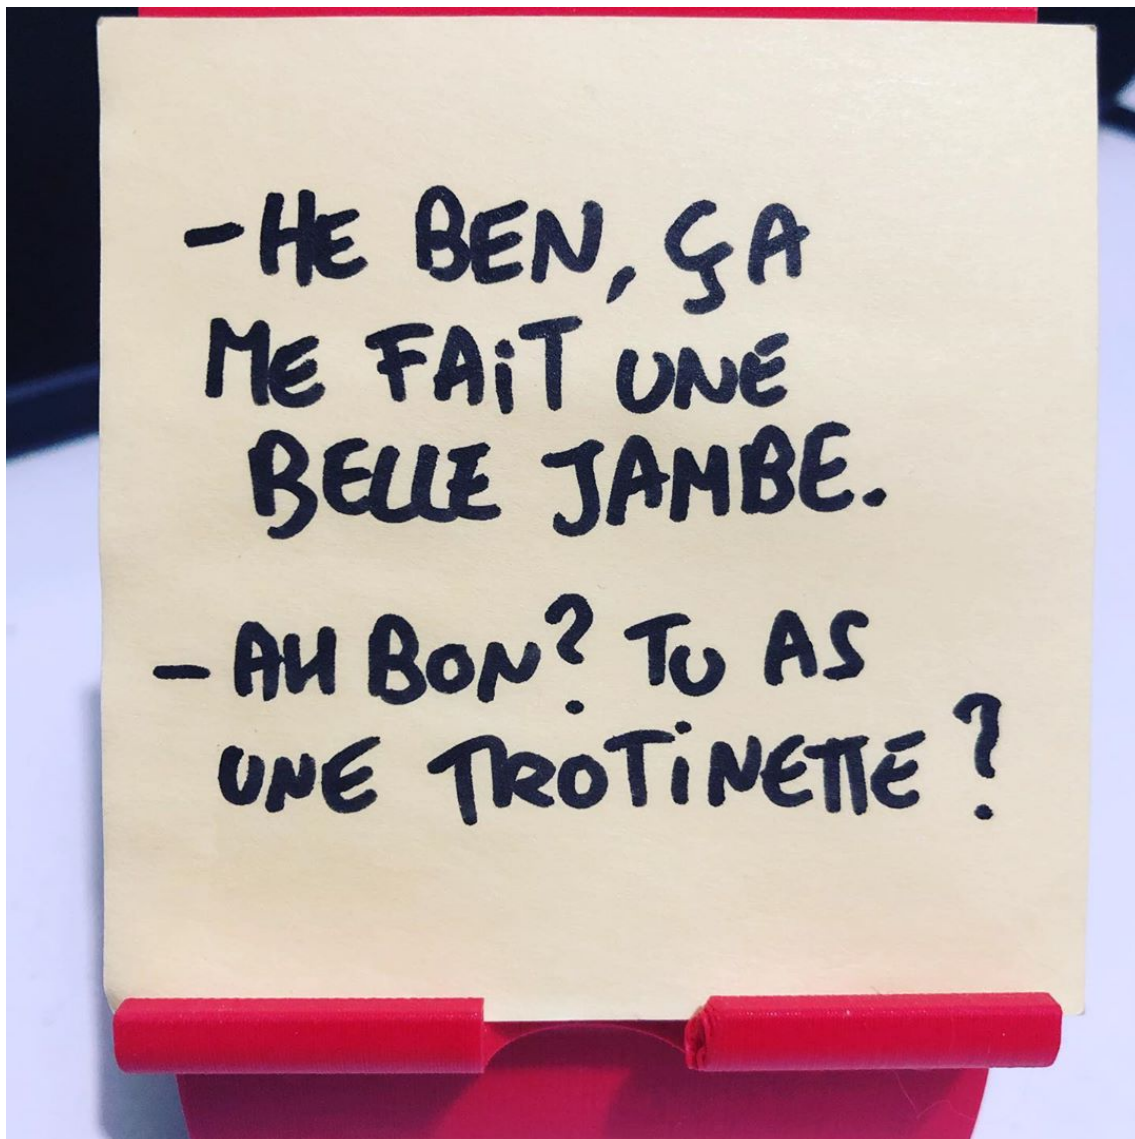 - HE BEN, ÇA
ME FAiT UNE
BELLE JAMBE.
- AH BON? TU AS
UNE TROTiNETTE ?